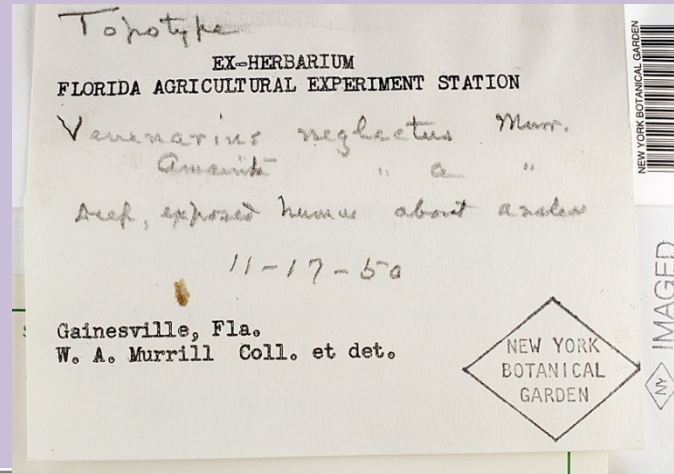 Topotype
EX-HERBARIUM
FLORIDA AGRICULTURAL EXPERIMENT STATION
Venenarius neglectus Murr.
Amanita " a "
deep, exposed humus about
11-17-50
Gainesville, Fla.
W. A. Murrill Coll. et det.
NEW YORK
BOTANICAL
GARDEN
NEW YORK BOTANICAL GARDEN
IMAGED
NY